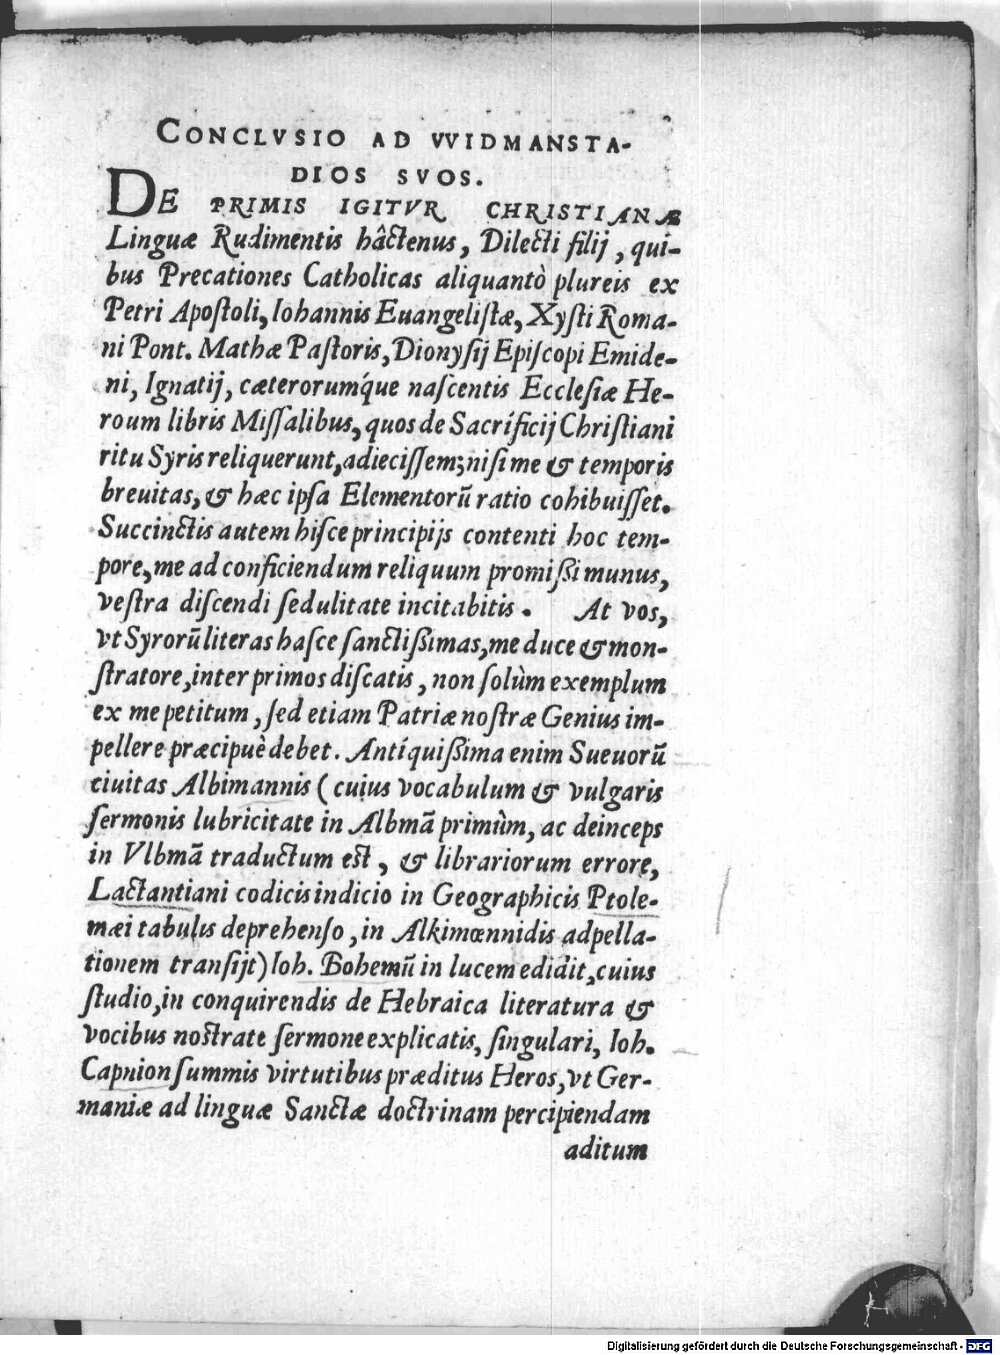 CONCLVSIO AD VVIDMANSTA-
DIOS SVOS.
DE PRIMIS IGITVR CHRISTIANÆ
Linguæ Rudimentis hâctenus, Dilecti filij, qui-
bus Precationes Catholicas aliquantò plureis ex
Petri Apoſtoli, Iohannis Euangeliſtæ, Xyſti Roma-
ni Pont. Mathæ Paſtoris, Dionyſij Epiſcopi Emide-
ni, Ignatij, cæterorumq́ue naſcentis Eccleſiæ He-
roum libris Miſſalibus, quos de Sacríficij Chriſtiani
ritu Syris reliquerunt, adieciſſem; niſi me & temporis
breuitas, & hæc ipſa Elementorū ratio cohibuiſſet.
Succinctis autem hiſce principijs contenti hoc tem-
pore, me ad conficiendum reliquum promißi munus,
veſtra diſcendi ſedulitate incitabitis. At vos,
vt Syrorū literas haſce ſanctißimas, me duce & mon-
ſtratore, inter primos diſcatis, non ſolùm exemplum
ex me petitum, ſed etiam Patriæ noſtræ Genius im-
pellere præcipuè debet. Antíquißima enim Sueuorū
ciuitas Albimannis (cuius vocabulum & vulgaris
ſermonis lubricitate in Albmā primùm, ac deinceps
in Vlbmā traductum est, & librariorum errore,
Lactantiani codicis indicio in Geographicis Ptole-
mæi tabulis deprehenſo, in Alkimœnnidis adpella-
tionem tranſijt) Ioh. Bohemū in lucem edidit, cuius
ſtudio, in conquirendis de Hebraica literatura &
vocibus nostrate ſermone explicatis, ſingulari, Ioh.
Capnion ſummis virtutibus præditus Heros, vt Ger-
maniæ ad linguæ Sanctæ doctrinam percipiendam
aditum
Digitalisierung gefördert durch die Deutsche Forschungsgemeinschaft - DFG